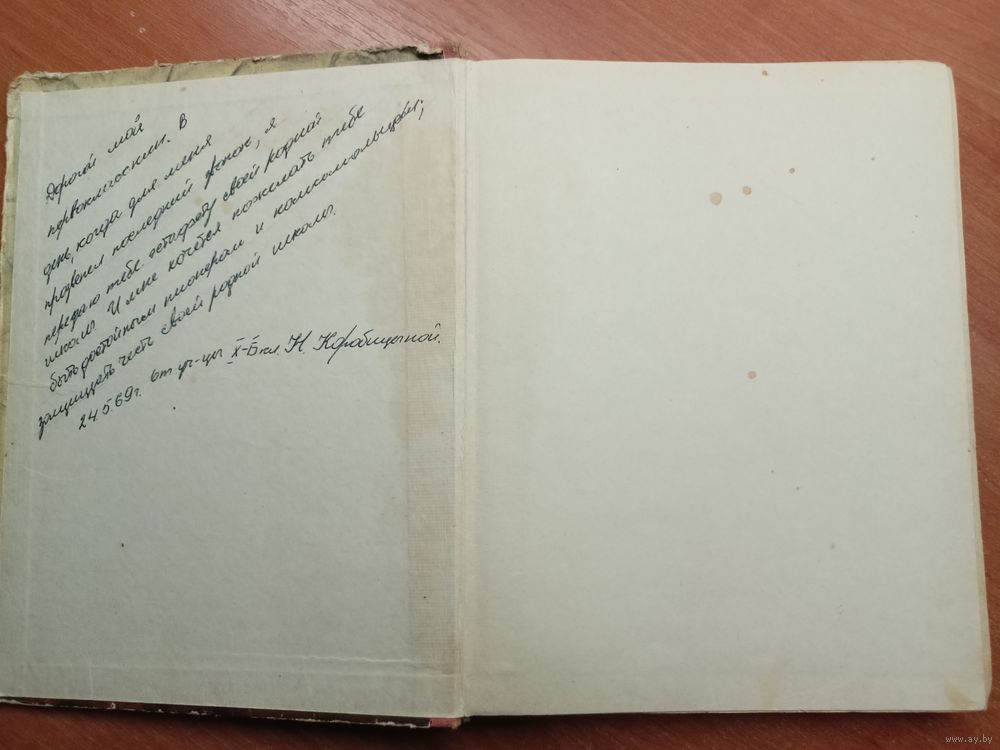 Дорогой мой
первоклассник. В
день, когда для меня
прозвенел последний звонок, я
передаю тебе эстафету своей родной
школы. И мне хочется пожелать тебе
быть достойным пионером и комсомольцем,
защищать честь своей родной школы.
24.5.69г. от уч-цы X-Б кл. Н.
www.ay.by